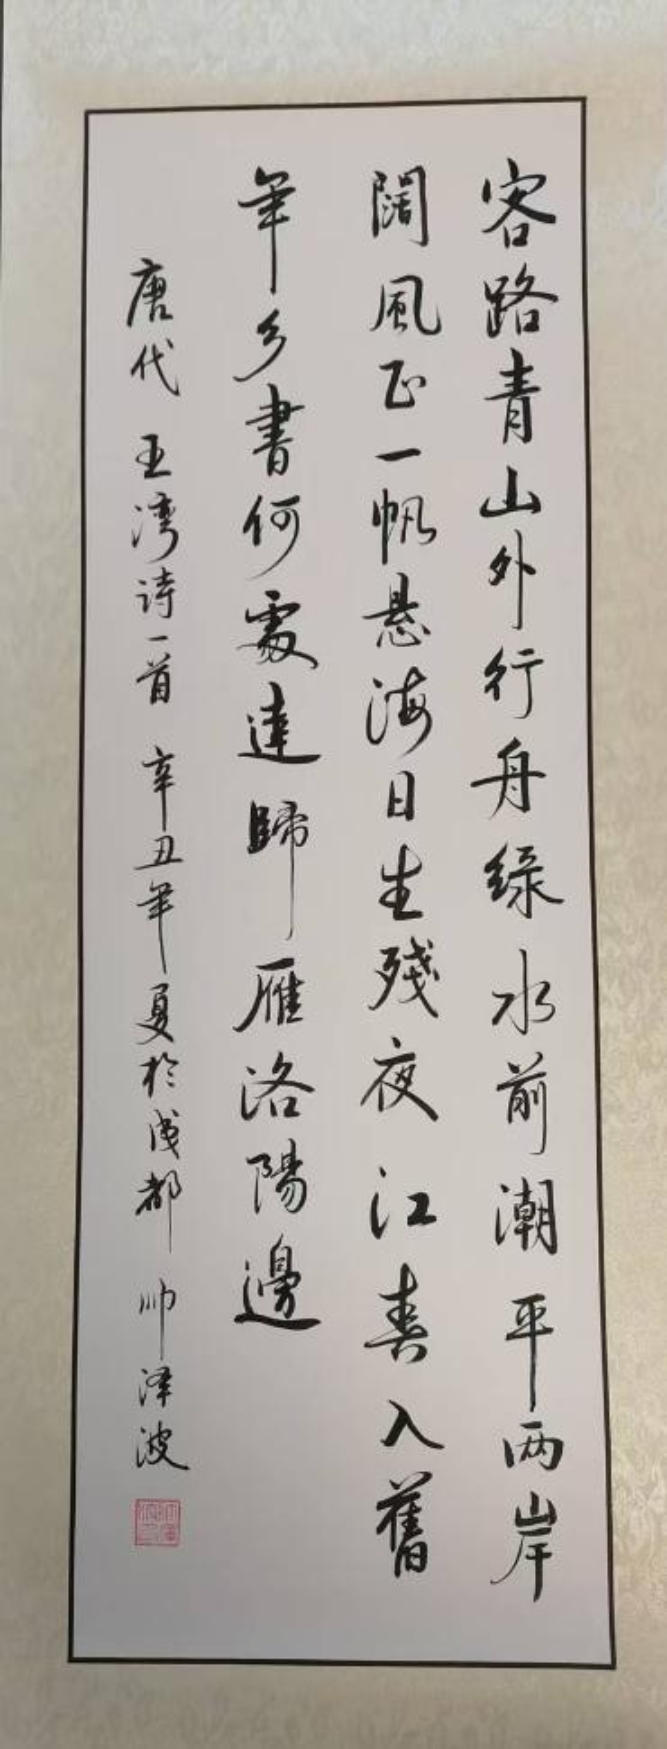 客路青山外行舟绿水前潮平两岸
闊風正一帆悬海日生残夜江春入舊
年乡書何處達歸雁洛陽邊
唐代 王湾诗一首 辛丑年夏於成都 帅泽波